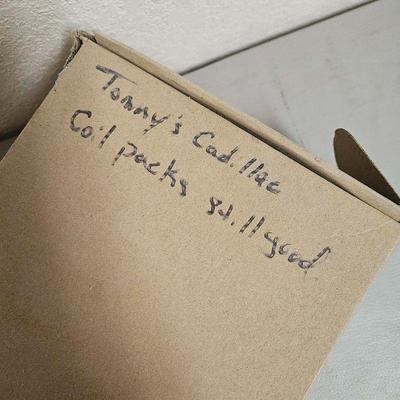 Tommy's Cadillac
Coil packs still good